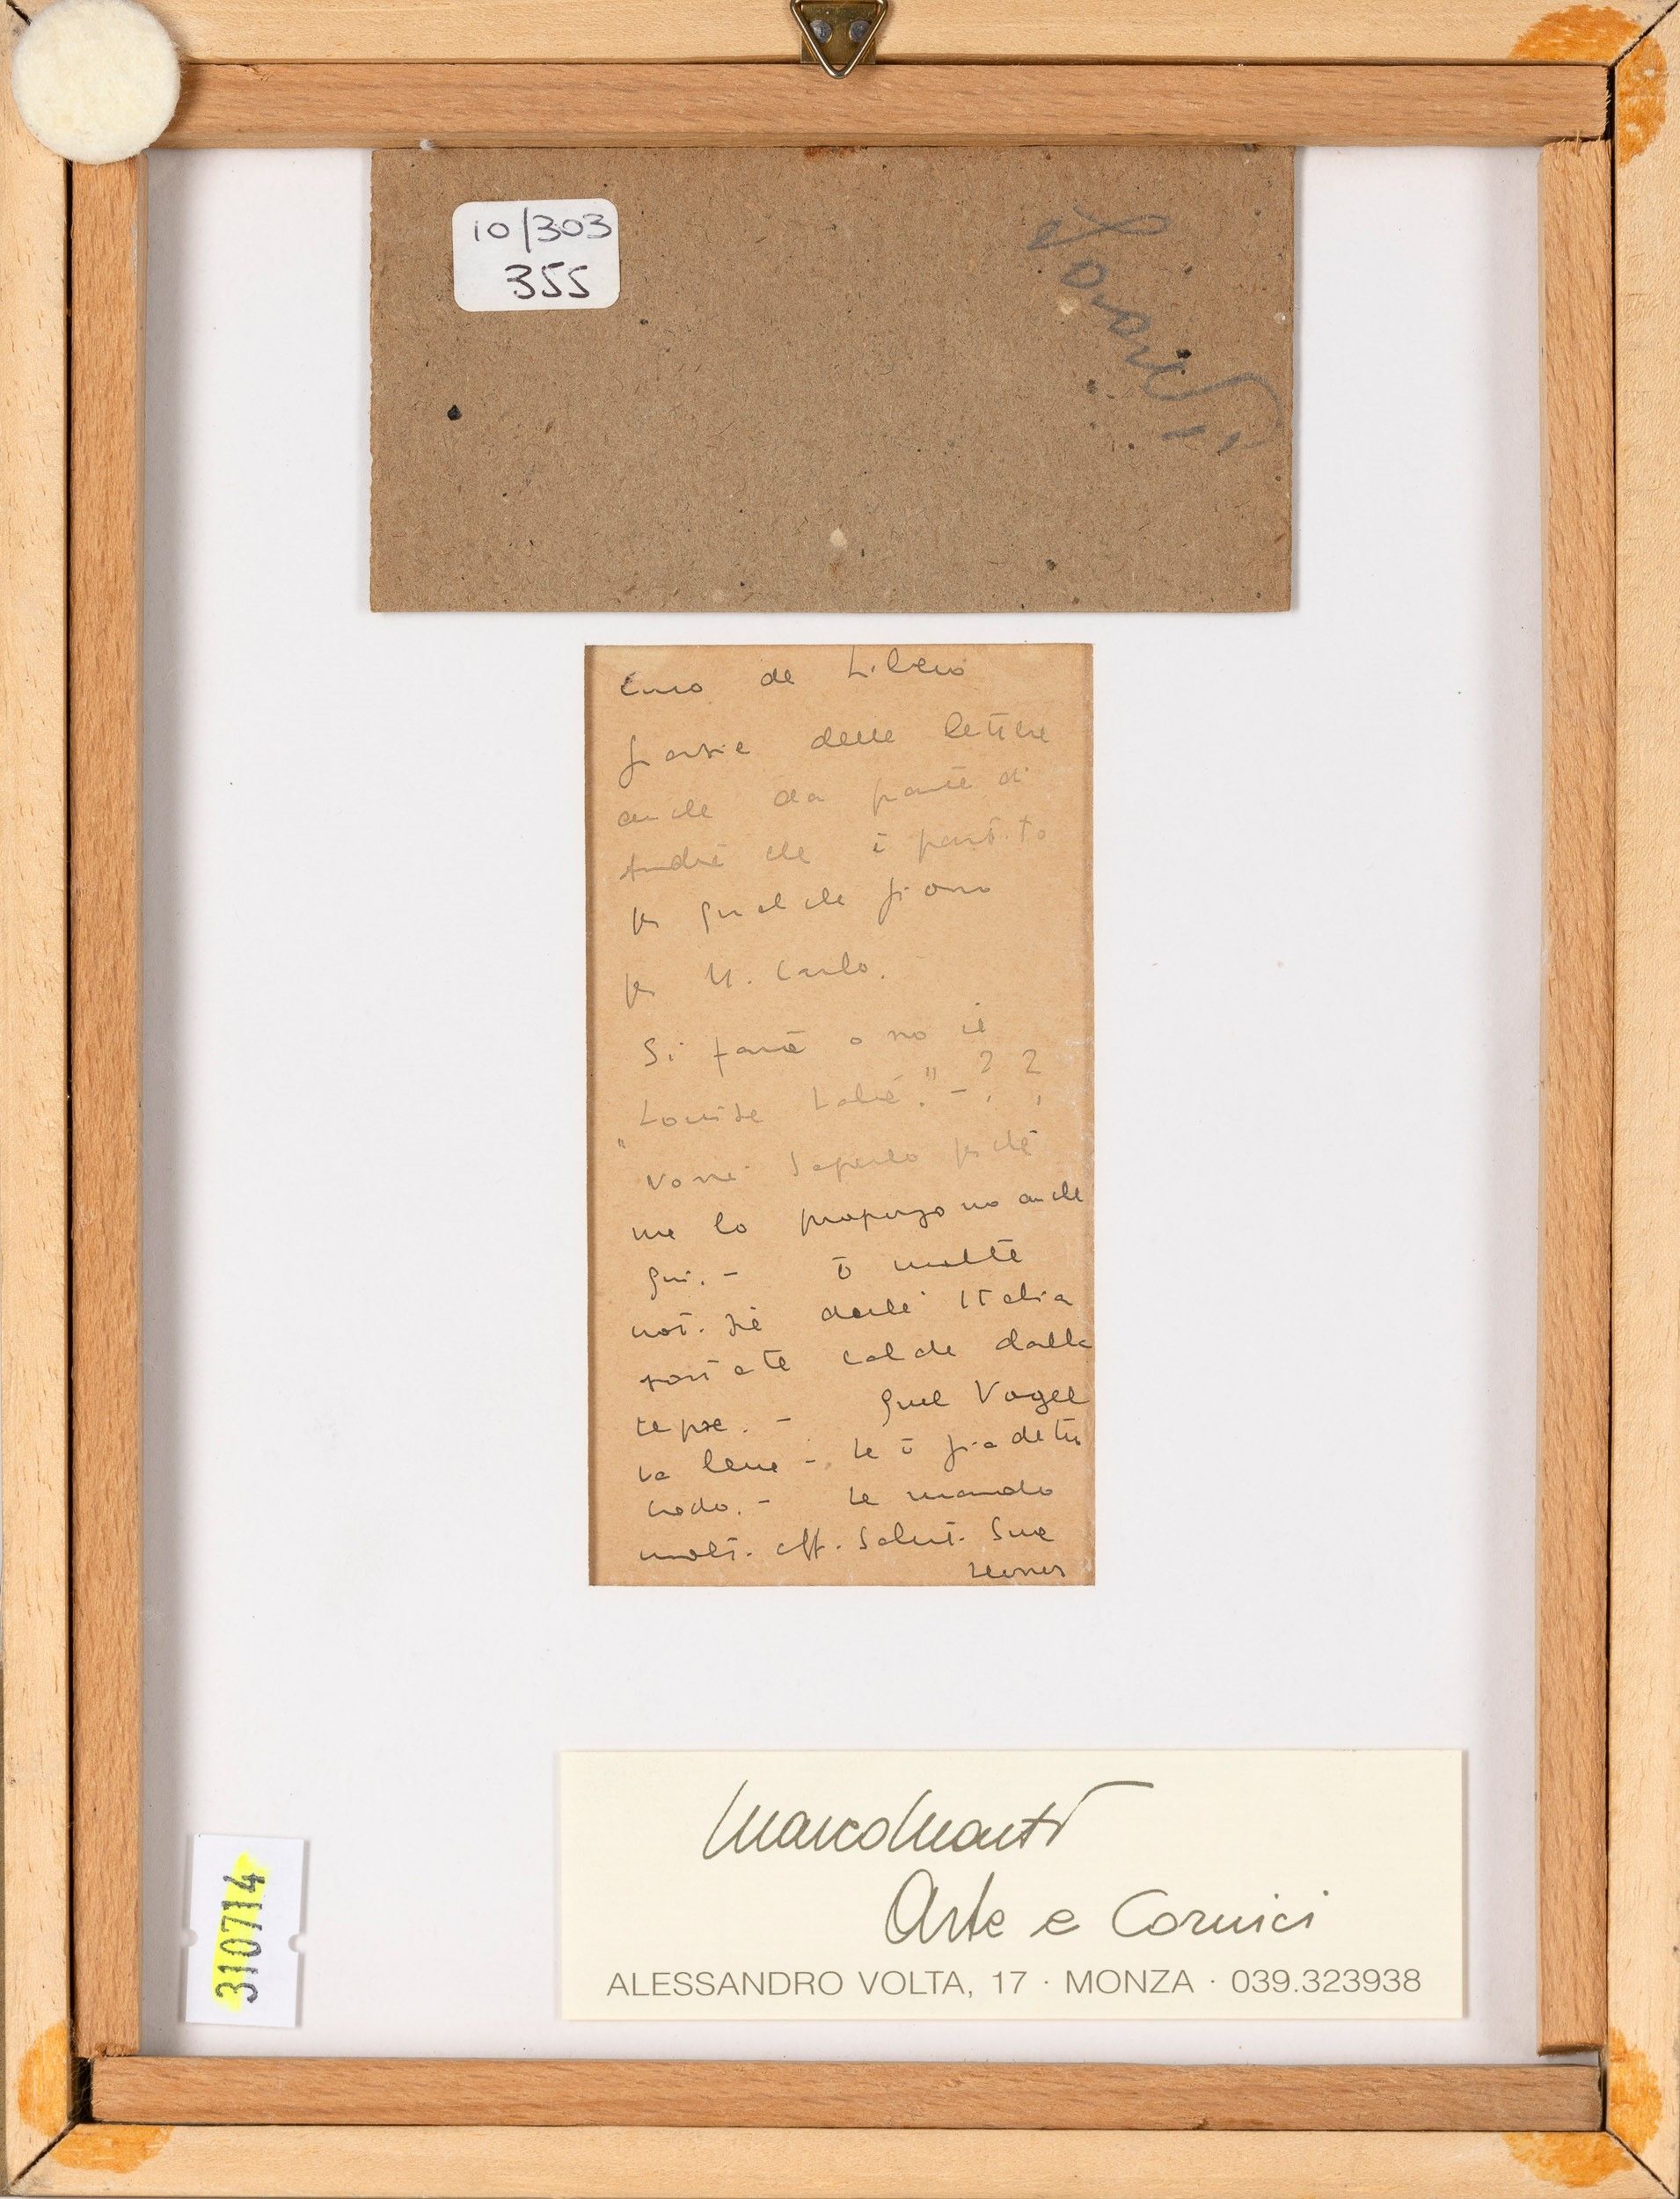 10/303
355
Caro de Libero
grazie delle lettere
anche da parte di
che è partito
per qualche giorno
per M. Carlo.
Si farà o no il
"Louise Labé."-? ?
Vorrei saperlo perché
me lo propongono anche
qui. - o molte
notizie dall'Italia
calde dalla
Quel Vogel
va bene - Le è già detto
credo. - Le mando
molt. aff. Salut. Sue
Marco Monti
Arte e Cornici
ALESSANDRO VOLTA, 17 · MONZA · 039.323938
310714